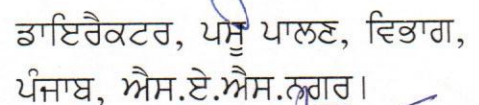 ਡਾਇਰੈਕਟਰ, ਪਸ਼ੂ ਪਾਲਣ, ਵਿਭਾਗ,
ਪੰਜਾਬ, ਐਸ.ਏ.ਐਸ.ਨਗਰ।